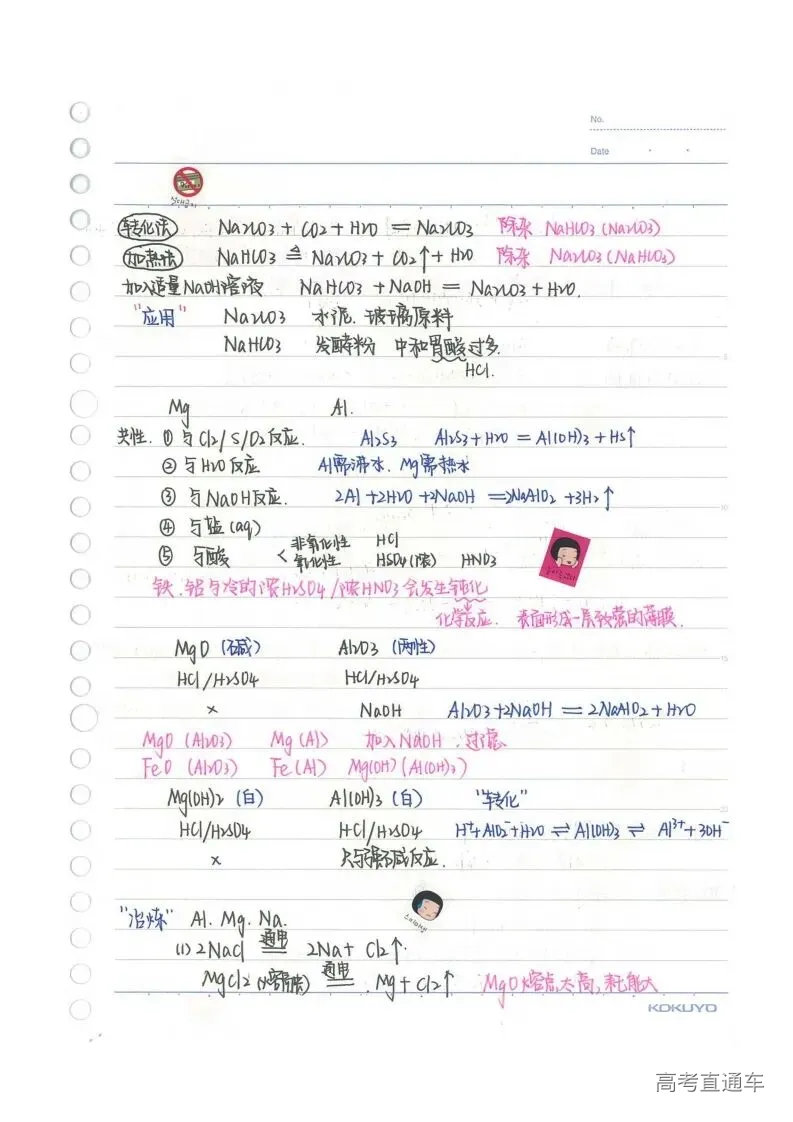 No.
Date
转化法 Na2CO3 + CO2 + H2O = Na2CO3 除杂 NaHCO3 (Na2CO3)
加热法 NaHCO3 ≜ Na2CO3 + CO2↑ + H2O 除杂 Na2CO3 (NaHCO3)
加入适量NaOH溶液 NaHCO3 + NaOH = Na2CO3 + H2O.
"应用" Na2CO3 水泥. 玻璃原料
NaHCO3 发酵粉 中和胃酸过多.
HCl.
Mg Al.
共性. ① 与Cl2/S/O2反应. Al2S3 Al2S3 + H2O = Al(OH)3 + HS↑
② 与H2O反应 Al需沸水. Mg需热水
③ 与NaOH反应. 2Al + 2H2O + 2NaOH = 2NaAlO2 + 3H2↑
④ 与盐(aq)
⑤ 与酸 < 非氧化性 HCl
氧化性 HSO4(浓) HNO3
铁. 铝与冷的浓H2SO4/浓HNO3会发生钝化
化学反应. 表面形成一层致密的薄膜.
MgO (碱) Al2O3 (两性)
HCl/H2SO4 HCl/H2SO4
× NaOH Al2O3+2NaOH = 2NaAlO2 + H2O
MgO (Al2O3) Mg(Al) 加入NaOH. 过滤
FeO (Al2O3) Fe(Al) Mg(OH) (Al(OH)3)
Mg(OH)2 (白) Al(OH)3 (白) "转化"
HCl/H2SO4 HCl/H2SO4 H⁺+AlO2⁻+H2O ⇌ Al(OH)3 ⇌ Al³⁺+3OH⁻
× 只与强碱反应.
"冶炼" Al. Mg. Na.
(1) 2NaCl 通电 = 2Na + Cl2↑.
MgCl2 (熔融) 通电 = Mg + Cl2↑ MgO熔点太高,耗能大
KOKUYO
高考直通车